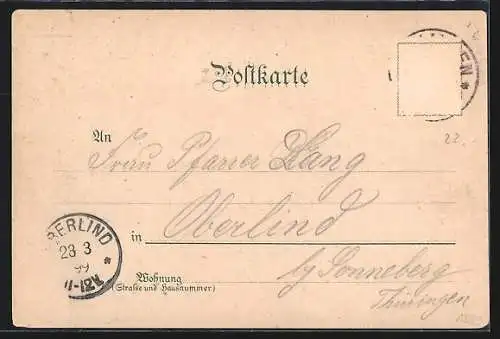 Postkarte
EN *
22.
An
Frau Pfarrer Lang
in Oberlind
b/ Sonneberg
Thüringen
Wohnung
(Straße und Hausnummer)
OBERLIND
23 3
99
*
11-12V